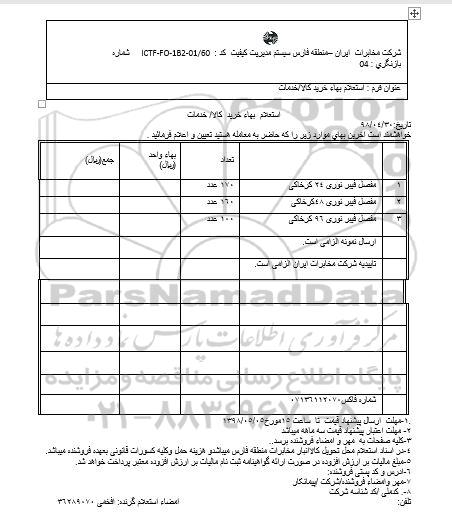 شرکت مخابرات ایران –منطقه فارس سیستم مدیریت کیفیت کد : ICTF-FO-1B2-01/60 شماره
بازنگری : 04
عنوان فرم : استعلام بهاء خرید کالا/خدمات
استعلام بهاء خرید کالا/ خدمات
تاریخ:۹۸/۰۴/۳۰
خواهشمند است آخرین بهای موارد زیر را که حاضر به معامله هستید تعیین و اعلام فرمائید .
تعداد بهاء واحد (ریال) جمع(ریال)
۱ مفصل فیبر نوری ۲۴ کرخاکی ۱۷۰ عدد
۲ مفصل فیبر نوری ۴۸کرخاکی ۱۶۰ عدد
۳ مفصل فیبر نوری ۹۶ کرخاکی ۱۰۰ عدد
ارسال نمونه الزامی است.
تاییدیه شرکت مخابرات ایران الزامی است.
ParsNamadData
مرکز فرآوری اطلاعات پارس نماد داده ها
پایگاه اطلاع رسانی مناقصه و مزایده
شماره فاکس۰۷۱۳۶۱۱۲۰۷۰
۱-مهلت ارسال پیشنهاد قیمت تا ساعت ۱۵مورخ۱۳۹۸/۰۵/۰۵
۲- مهلت اعتبار پیشنهاد قیمت سه ماهه میباشد
۳-کلیه صفحات به مهر و امضاء فروشنده برسد..
۴-در اسناد استعلام محل تحویل کالاانبار مخابرات منطقه فارس میباشدو هزینه حمل وکلیه کسورات قانونی بعهده فروشنده میباشد.
۵-مبلغ مالیات بر ارزش افزوده در صورت ارائه گواهینامه ثبت نام مالیات بر ارزش افزوده معتبر پرداخت خواهد شد.
۶-آدرس و کد پستی فروشنده:
۷-مهر وامضاء فروشنده/شرکت /پیمانکار
۸- کدملی /کد شناسه شرکت
تلفن: امضاء استعلام گرنده: افخمی ۳۶۲۸۹۰۷۰